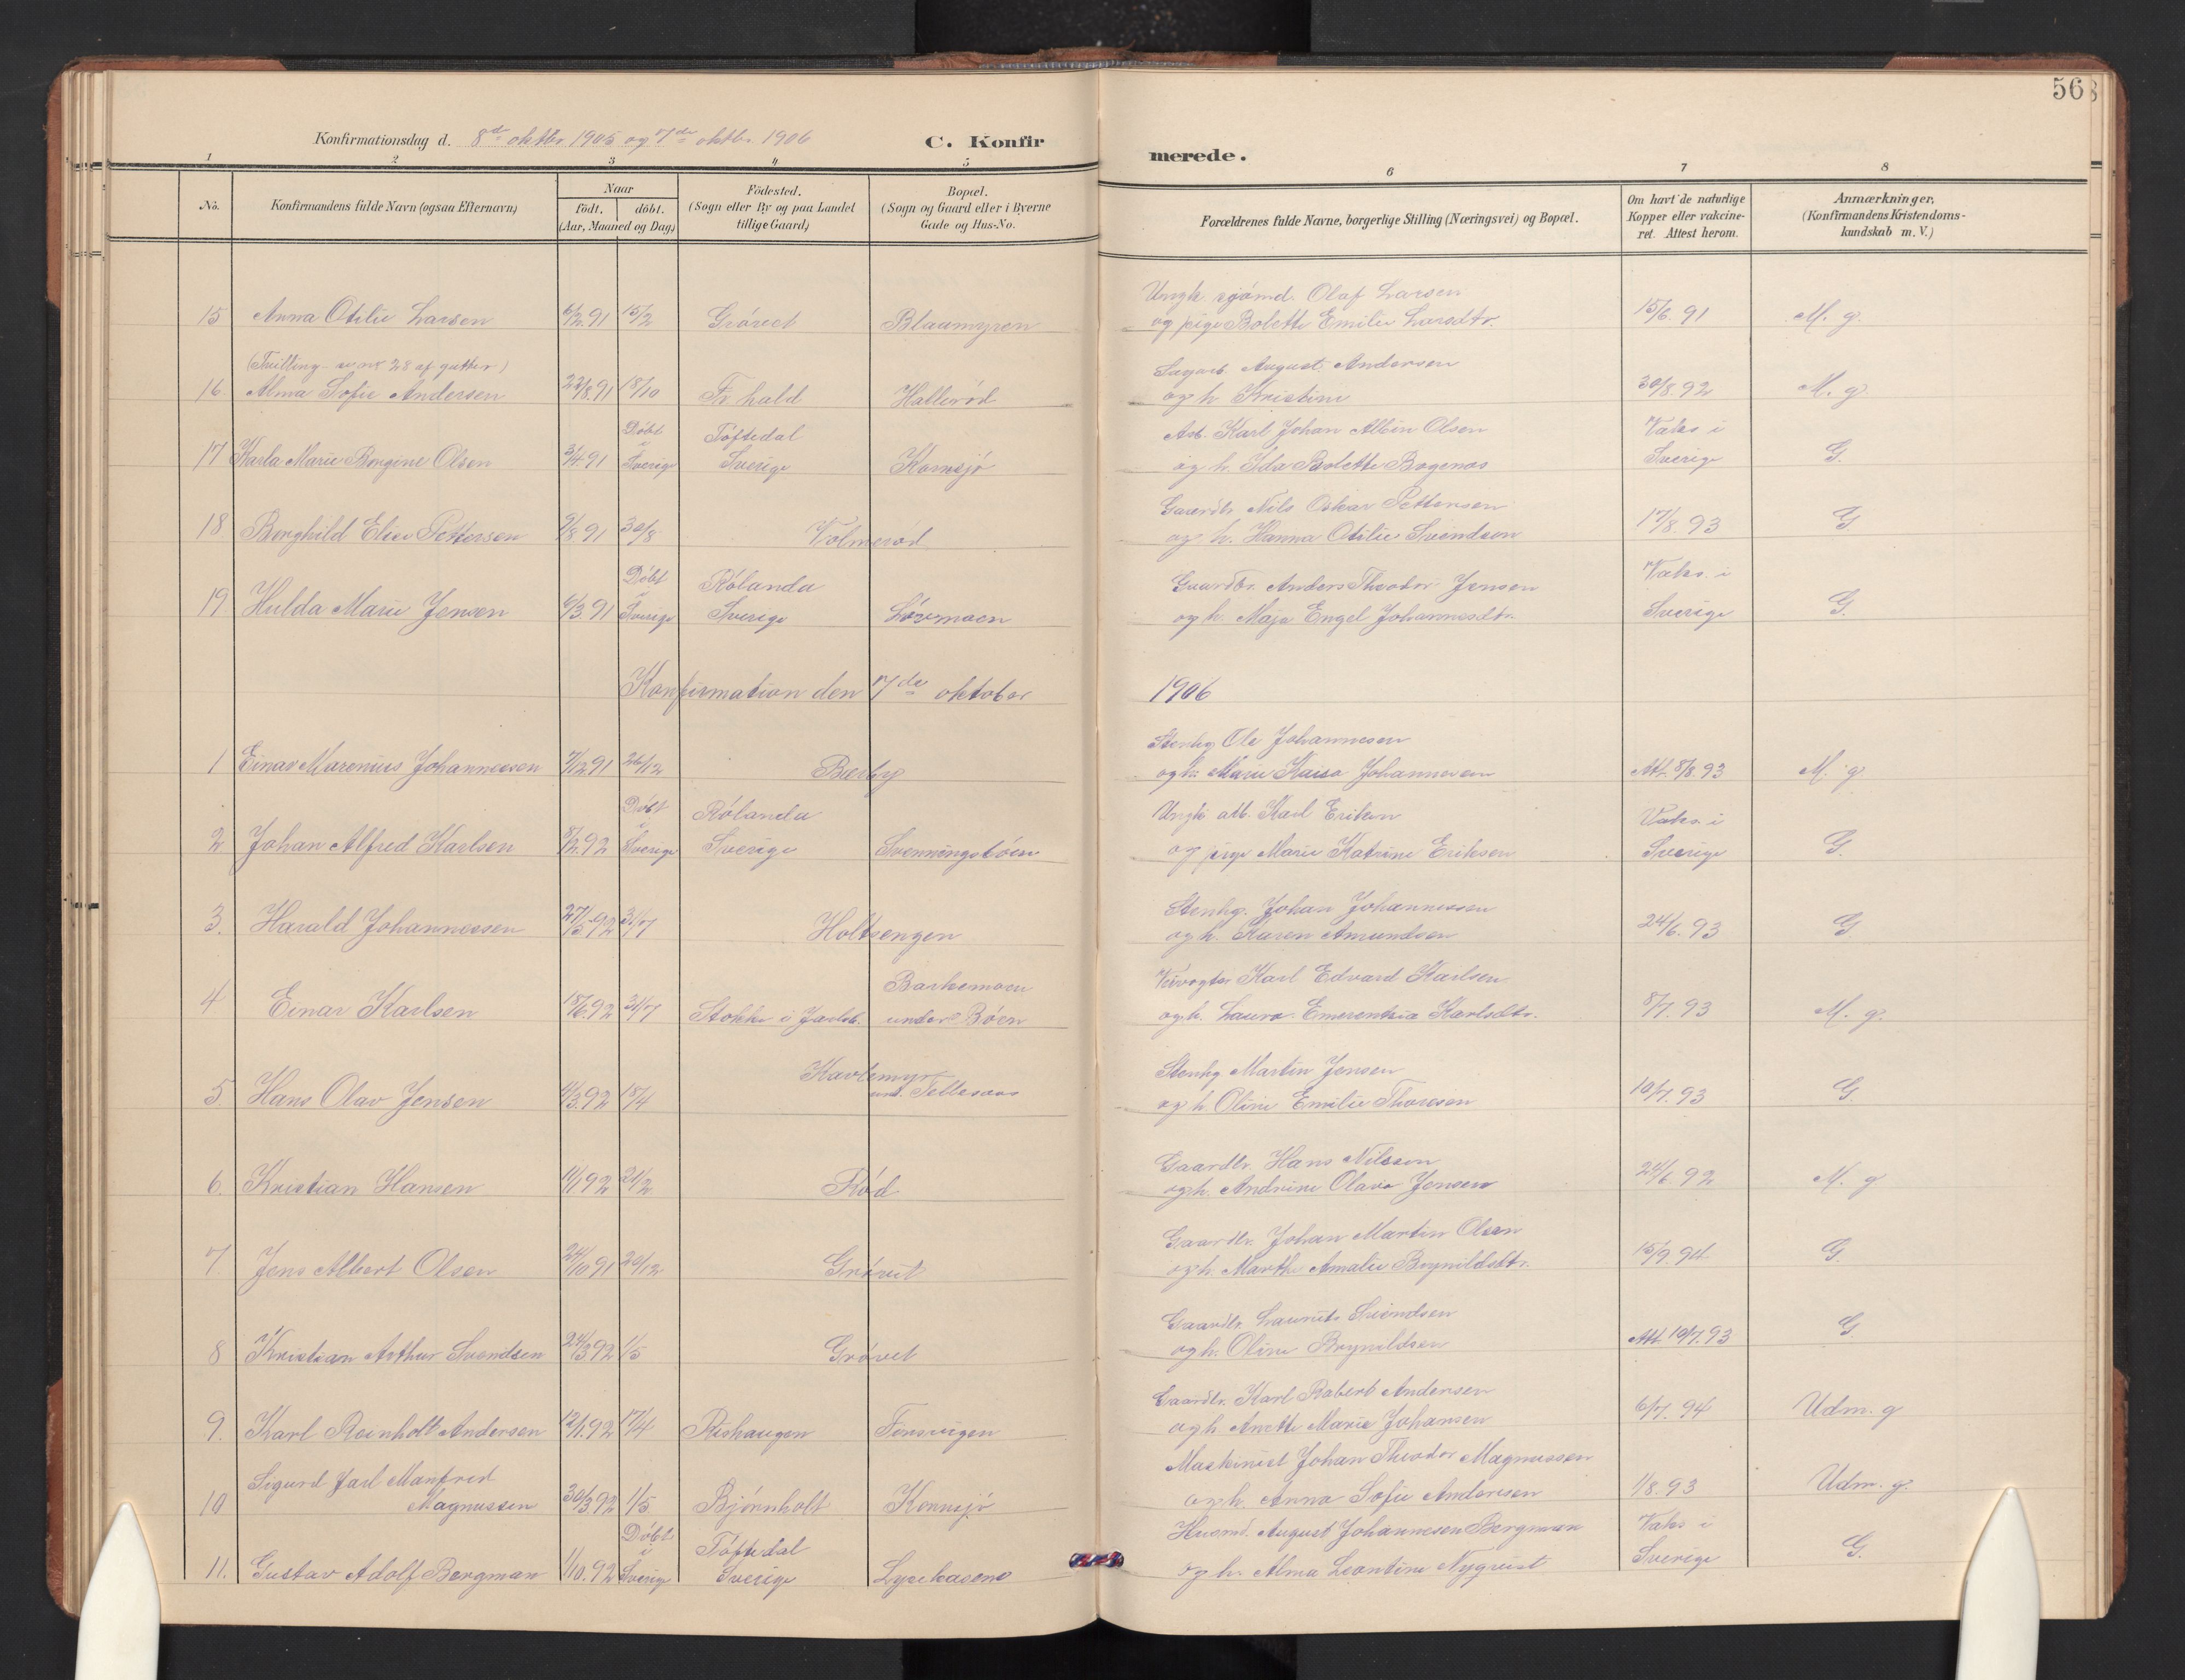 56
Konfirmationsdag d. 8de oktbr 1905 og 7de oktbr. 1906
C. Konfirmerede.
1 2 3 4 5 6 7 8
No.
Konfirmandens fulde Navn (ogsaa Efternavn)
Naar
födt. döbt.
(Aar, Maaned og Dag)
Födested.
(Sogn eller By og paa Landet
tillige Gaard)
Bopæl.
(Sogn og Gaard eller i Byerne
Gade og Hus-No.
Forældrenes fulde Navne, borgerlige Stilling (Næringsvei) og Bopæl.
Om havt de naturlige
Kopper eller vakcine-
ret. Attest herom.
Anmærkninger,
(Konfirmandens Kristendoms-
kundskab m. V.)
Ungk. sjómd. Olaf Larsen
15 Anna Otilie Larsen 6/2.91 15/2 Gróvet Blaamyren og pige Bolette Emilie Larsdtr. 15/6.91 M. g.
(Tvilling se nr 28 af gutter) Sagarb. August Andersen
16. Alma Sofie Andersen 22/8.91 18/10 Fr.hald Hallerød og h. Kristine 30/8.92 M. g.
Döbt i Tóftedal Arb. Karl Johan Albin Olsen Vaks i
17 Karla Marie Borgine Olsen 3/4.91 Sverige Sverige Kornsjø og h. Ida Bolette Bogenæs Sverige G.
Gaardbr. Nils Oskar Pettersen
18 Borghild Elise Pettersen 9/8.91 30/8 Volmerød og h. Hanna Otilie Svendsen 17/8.93 G
Döbt i Rólanda Gaardbr. Anders Theodor Jensen Vaks. i
19 Hulda Marie Jensen 6/3.91 Sverige Sverige Lövmoen og h. Maja Engel Johannesdtr. Sverige G.
Konfirmation den 7de oktober 1906
Stenhg Ole Johannesen
1 Einar Marenius Johannessen 7/12.91 26/12 Bærby og h. Marie Kaisa Johannesen Att. 8/8.93 M. g
Döbt i Rólanda Ungk. arb. Karl Eriksen Vaks. i
2 Johan Alfred Karlsen 8/2.92 Sverige Sverige Svenningsbóen og pige Marie Katrine Eriksen Sverige G.
Stenhg. Johan Johannessen
3. Harald Johannessen 27/5.92 31/7 Holtsengen og h. Karen Amundsen 24/6.93 G
Barkemoen Veivogter Karl Edvard Karlsen
4 Einar Karlsen 18/6.92 31/7 Stokke i Jarlsb. under Bóen og h. Laura Emerentsia Karlsdtr. 8/7.93 M. g.
Kavlemyr Stenhg Martin Jensen
5. Hans Olav Jensen 4/3.92 18/4 und. Tellesaas og h. Oline Emilie Thoresen 10/7.93 G.
Gaardbr. Hans Nilssen
6. Kristian Hansen 11/1.92 21/2 Ród og h. Andrine Olava Jensen 24/6.92 M. g
Gaardbr. Johan Martin Olsen
7. Jens Albert Olsen 24/10.91 20/12 Grövet og h. Marthe Amalie Brynildsdtr. 15/9.94 G.
Gaardbr. Laurits Svendsen
8 Kristian Arthur Svendsen 24/3.92 1/5 Gróvet og h. Oline Brynildsen Att. 10/7.93 G
Gaardbr. Karl Robert Andersen
9. Karl Reinholt Andersen 12/1.92 17/4 Rishaugen Finsvigen og h. Anette Marie Johansen 6/7.94 Udm. g
Sigurd Jarl Manfred Maskinist Johan Theodor Magnussen
10 Magnussen 30/3.92 1/5. Bjørnholt Kornsjø og h. Anna Sofie Andersen 1/8.93 Udm. g.
Döbt i Tóftedal Husmd. August Johannesen Bergman Vaks i
11. Gustav Adolf Bergman 1/10.92 Sverige Sverige Lysekasene og h. Alma Leontine Nyquist Sverige G.